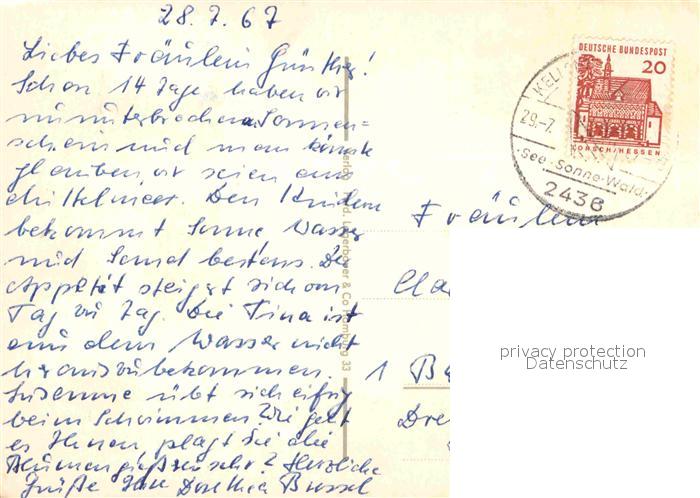 28.7.67
Liebes Fräulein Günther!
Schon 14 Tage haben wir
ununterbrochen Sonnen=
schein und man könnte
glauben, wir seien am
Mittelmeer. Den Kindern
bekommt Sonne, Wasser
und Sand bestens. Der
Appetit steigert sich von
Tag zu Tag. Die Tina ist
aus dem Wasser nicht
herauszubekommen.
Susanne übt sich eifrig
beim Schwimmen. Wie geht
es Ihnen, plagt Sie die
Blumengießen sehr? Herzliche
Grüße Ihre Dorothea
Verlag Ferd. Lagerbauer & Co Hamburg 33
DEUTSCHE BUNDESPOST
20
LORSCH/HESSEN
29.-7.
·See·Sonne·Wald·
2436
Fräulein
Cla
1 B
Dre
privacy protection
Datenschutz